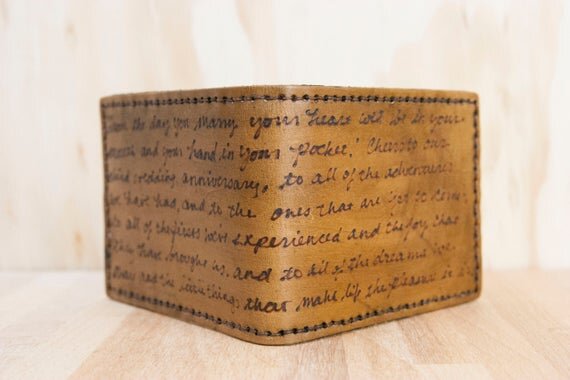 the day you marry your heart will be in your
and your hand in your pocket! Cheers to our
wedding anniversary, to all of the adventures
have had, and to the ones that are yet to come,
to all of the firsts we've experienced and the joy that
they have brought us, and to all of the dreams
had the things that make life the pleasure it is